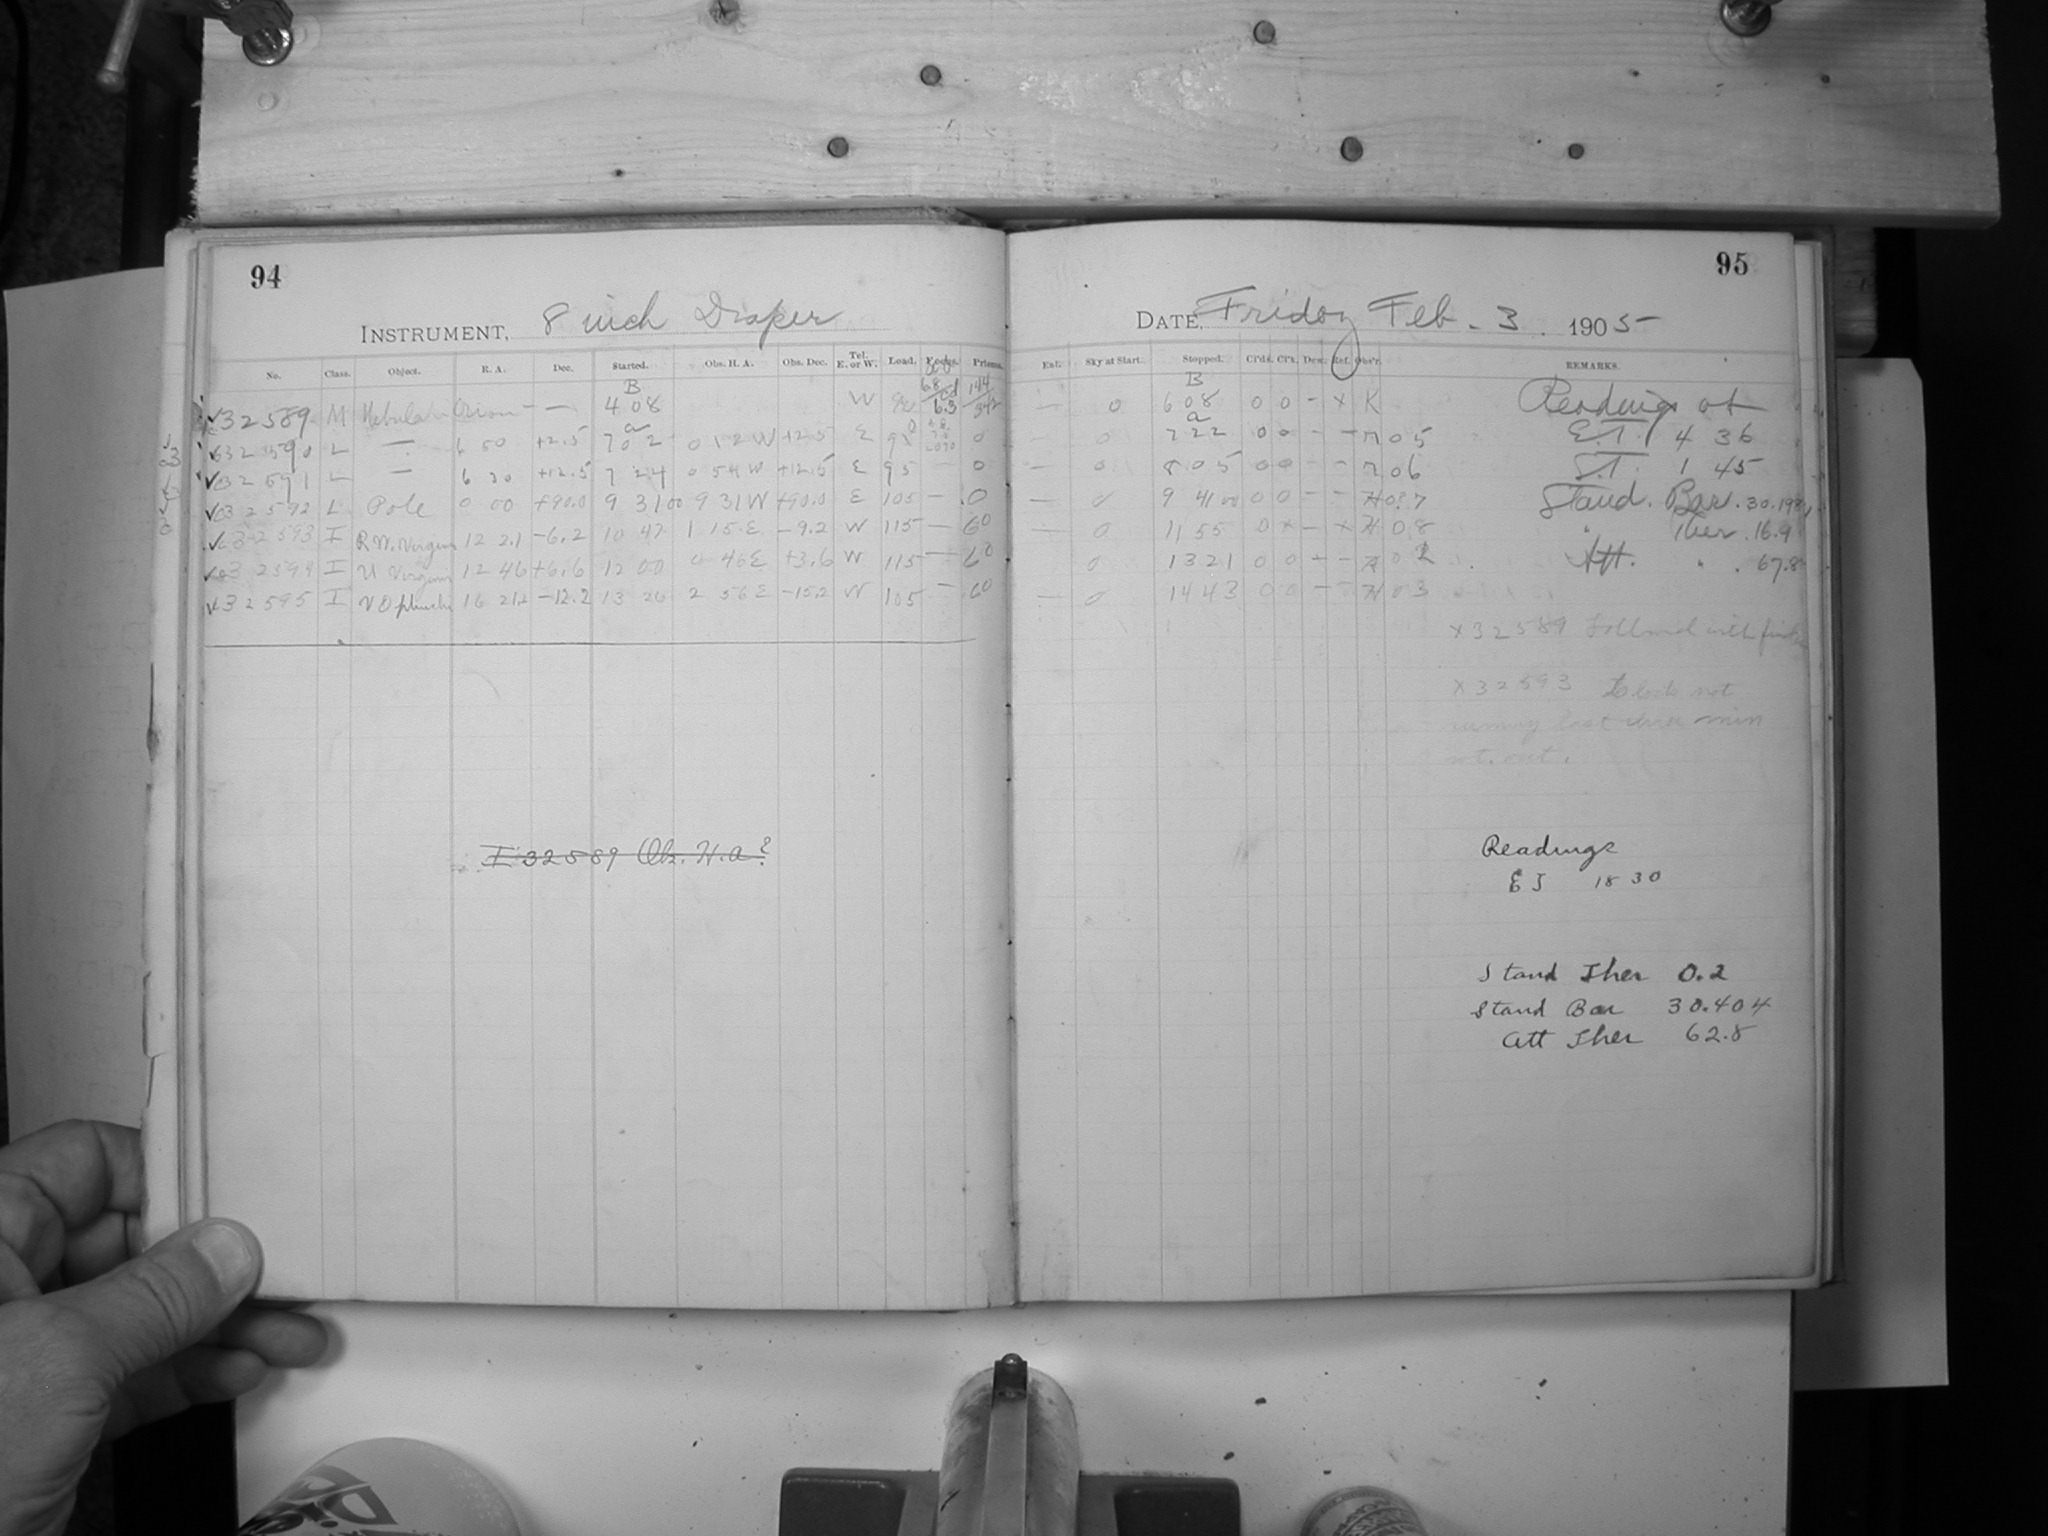 94
INSTRUMENT, 8 inch Draper
No. Class. Object. R. A. Dec. Started. Obs. H. A. Obs. Dec. Tel. E. or W. Load. Focus. Prisms.
B
32589 M Nebula in Orion — — 4 08 W
a
32590 L — 6 50 +2.5 7 02 0 12 W +2.5 E 95 0
32591 L — 6 30 +12.5 7 24 0 54 W +12.5 E 95 — 0
32592 L Pole 0 00 +90.0 9 31 00 9 31 W +90.0 E 105 — 0
32593 I R W. Virginis 12 2.1 -6.2 10 47 1 15 E -9.2 W 115 — 60
32594 I U Virginis 12 46 +6.6 12 00 0 46 E +3.6 W 115 — 60
32595 I V Ophiuchi 16 21.2 -12.2 13 26 2 56 E -15.2 W 105 — 60
I 32589 Ob. H.A.?
95
DATE, Friday Feb. 3. 1905
Ent. Sky at Start. Stopped. Cl'ds. Cl'r. Dew. Ref. Obs'r. REMARKS.
B
— 0 6 08 0 0 - x K Readings at
a
— 0 7 22 0 0 - - 05 E.T. 4 36
— 0 8 05 0 0 - - 06 S.T. 1 45
— 0 9 41 00 0 0 - - H 07 Stand. Bar. 30.198
— 0 11 55 0 x - x H 08 " Ther. 16.9
0 13 21 0 0 - - H 02 Att. " . 67.8
— 0 14 43 0 0 - - H 03
x32589 Followed with
x32593 Clock not
running last three min
Readings
E J 18 30
Stand Ther 0.2
Stand Bar 30.404
Att Ther 62.8
Die